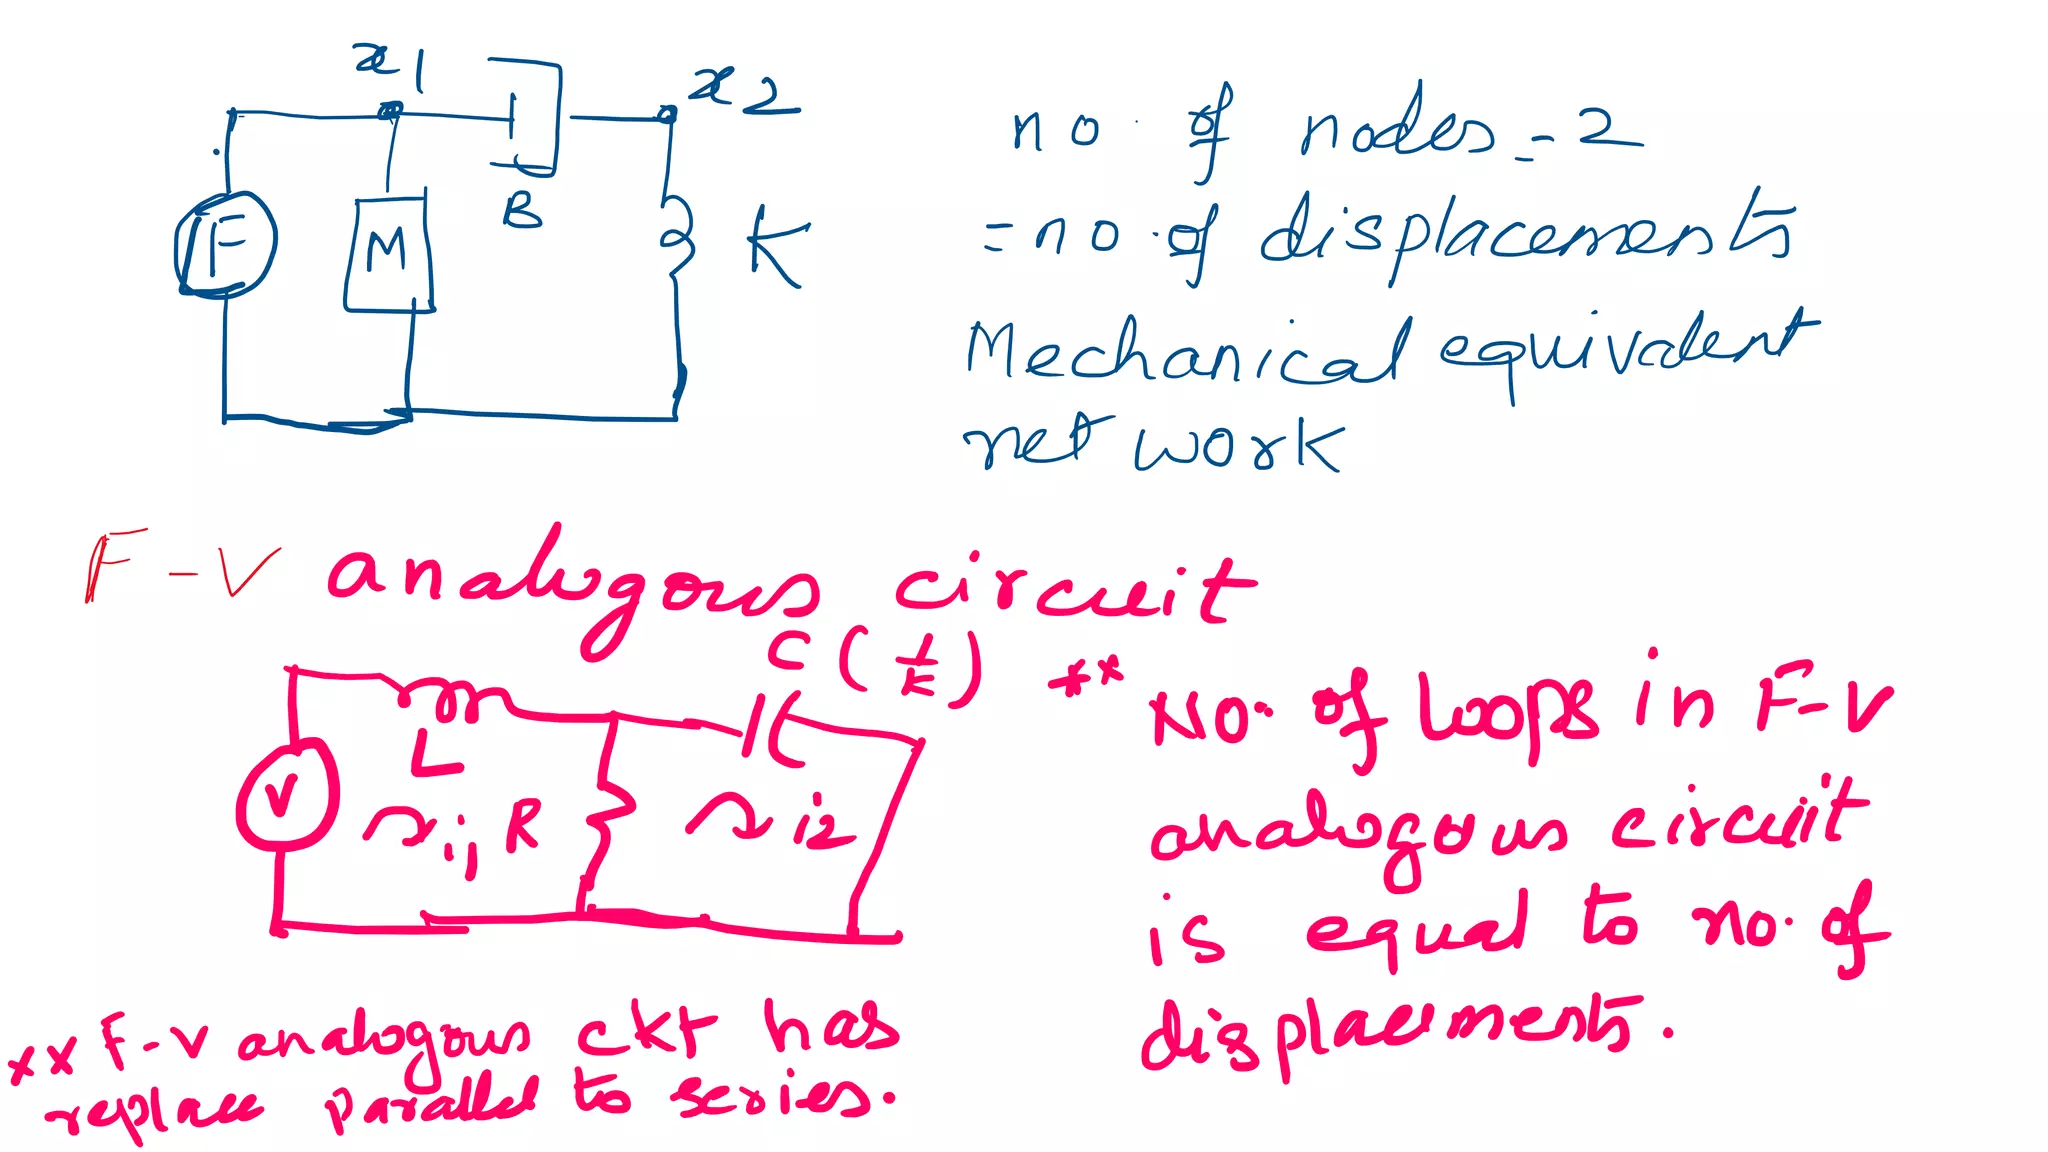 x1
x2
F
M
B
K
no. of nodes = 2
= no. of displacements
Mechanical equivalent
net work
F-V analogous circuit
C (1/K)
L
V
i1
R
i2
** No. of loops in F-V
analogous circuit
is equal to no. of
displacements.
** F-V analogous ckt has
replace parallel to series.